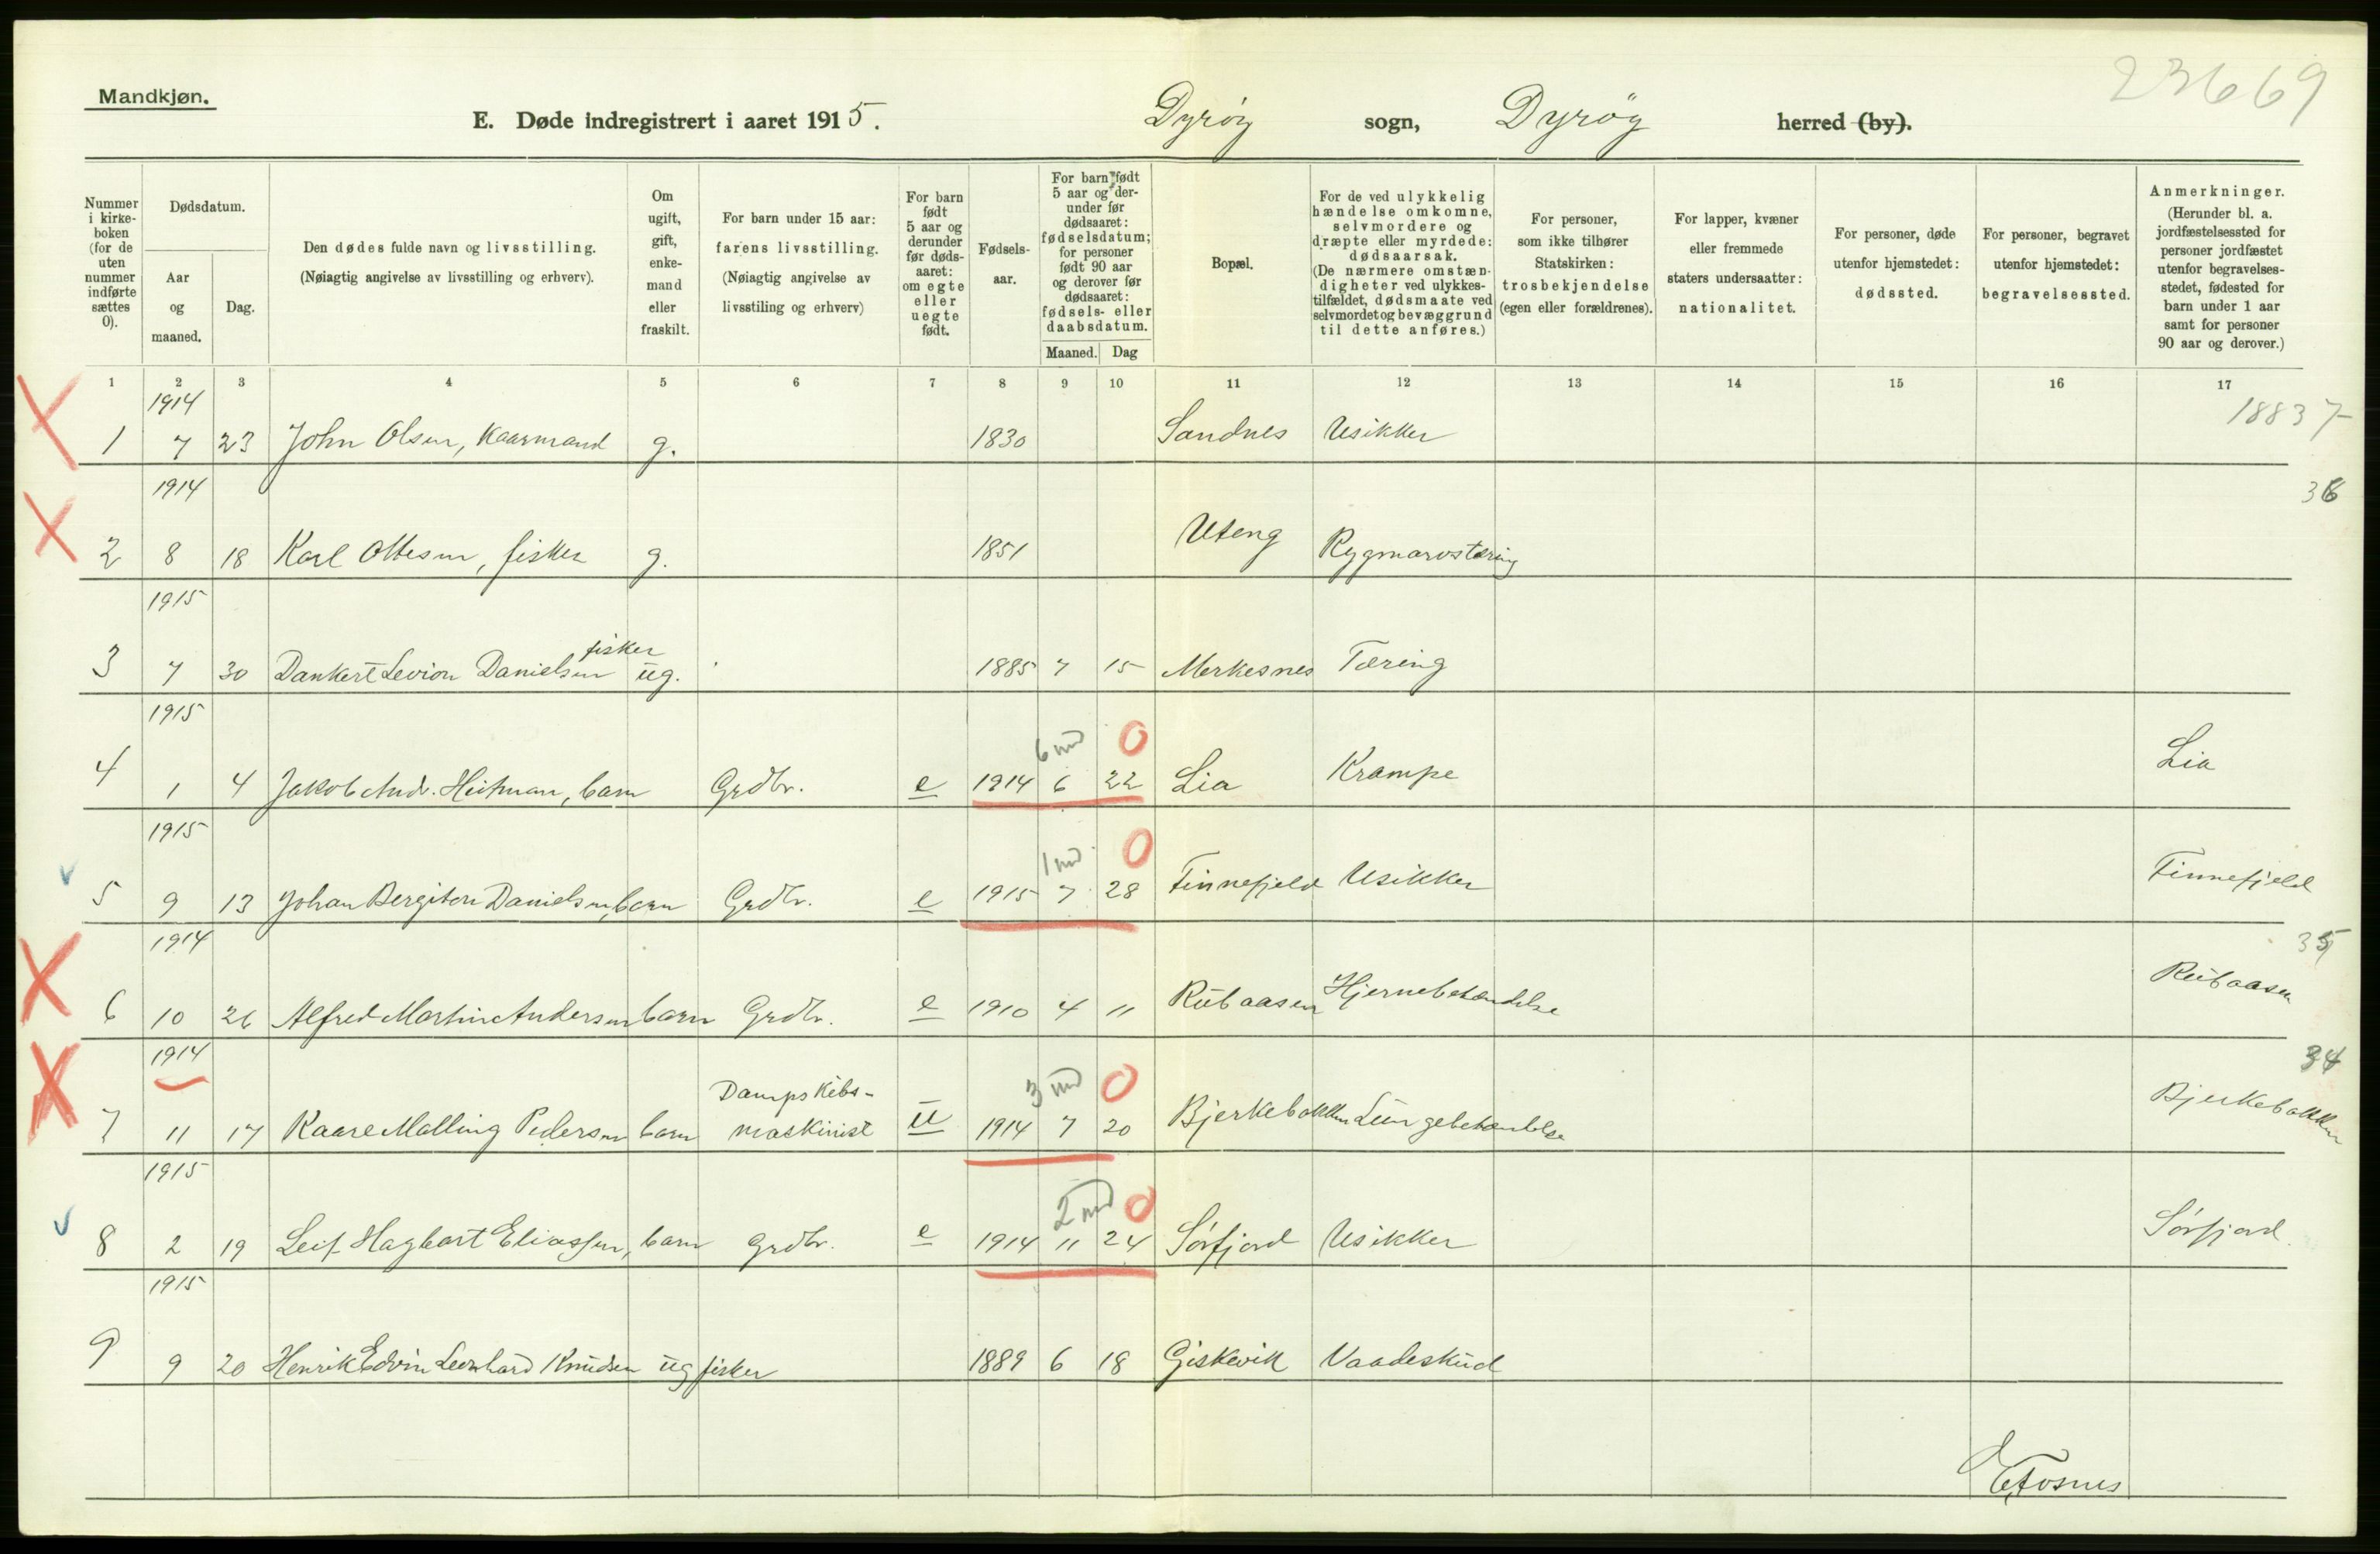 Mandkjøn.
23669
E. Døde indregistrert i aaret 1915. Dyrøy sogn, Dyröy herred (by).
Nummer i kirke-boken (for de uten nummer indførte sættes 0).
Dødsdatum.
Aar og maaned.
Dag.
Den dødes fulde navn og livsstilling.
(Nøiagtig angivelse av livsstilling og erhverv).
Om ugift, gift, enke-mand eller fraskilt.
For barn under 15 aar: farens livsstilling.
(Nøiagtig angivelse av livsstiling og erhverv)
For barn født 5 aar og derunder før døds-aaret: om egte eller uegte født.
Fødsels-aar.
For barn født 5 aar og der-under før dødsaaret: fødselsdatum; for personer født 90 aar og derover før dødsaaret: fødsels- eller daabsdatum.
Maaned. Dag
Bopæl.
For de ved ulykkelig hændelse omkomne, selvmordere og dræpte eller myrdede: dødsaarsak.
(De nærmere omstæn-digheter ved ulykkes-tilfældet, dødsmaate ved selvmordet og bevæggrund til dette anføres.)
For personer, som ikke tilhører Statskirken: trosbekjendelse (egen eller forældrenes).
For lapper, kvæner eller fremmede staters undersaatter: nationalitet.
For personer, døde utenfor hjemstedet: dødssted.
For personer, begravet utenfor hjemstedet: begravelsessted.
Anmerkninger.
(Herunder bl. a. jordfæstelsessted for personer jordfæstet utenfor begravelses-stedet, fødested for barn under 1 aar samt for personer 90 aar og derover.)
1 2 3 4 5 6 7 8 9 10 11 12 13 14 15 16 17
1914 18837
1 7 23 John Olsen, Kaarmand g. 1830 Sandnes Usikker
1914 36
2 8 18 Karl Ottesen, fisker g. 1851 Uteng Rygmarvstæring
1915
fisker
3 7 30 Dankert Levion Danielsen ug. 1885 7 15 Merkesnes Tæring
1915 6 md 0
4 1 4 Jakob Andr. Heitman, barn Grdbr. e 1914 6 22 Lia Krampe Lia
1915 1 md 0
5 9 13 Johan Bergiton Danielsen, barn Grdbr. e 1915 7 28 Finnefjeld Usikker Finnefjeld
1914 35
6 10 26 Alfred Martin Andersen barn Grdbr. e 1910 4 11 Rubaasen Hjernebetændelse Rubaasen
1914 Dampskibs- 3 md 0 34
7 11 17 Kaare Malling Pedersen barn maskinist u 1914 7 20 Bjerkebakken Lungebetændelse Bjerkebakken
1915 2 md 0
8 2 19 Leif Hagbart Eliassen, barn grdbr. e 1914 11 24 Sörfjord Usikker Sörfjord
1915
9 9 20 Henrik Edvin Leonhard Knudsen ug fisker 1889 6 18 Giskevik Vaadeskud